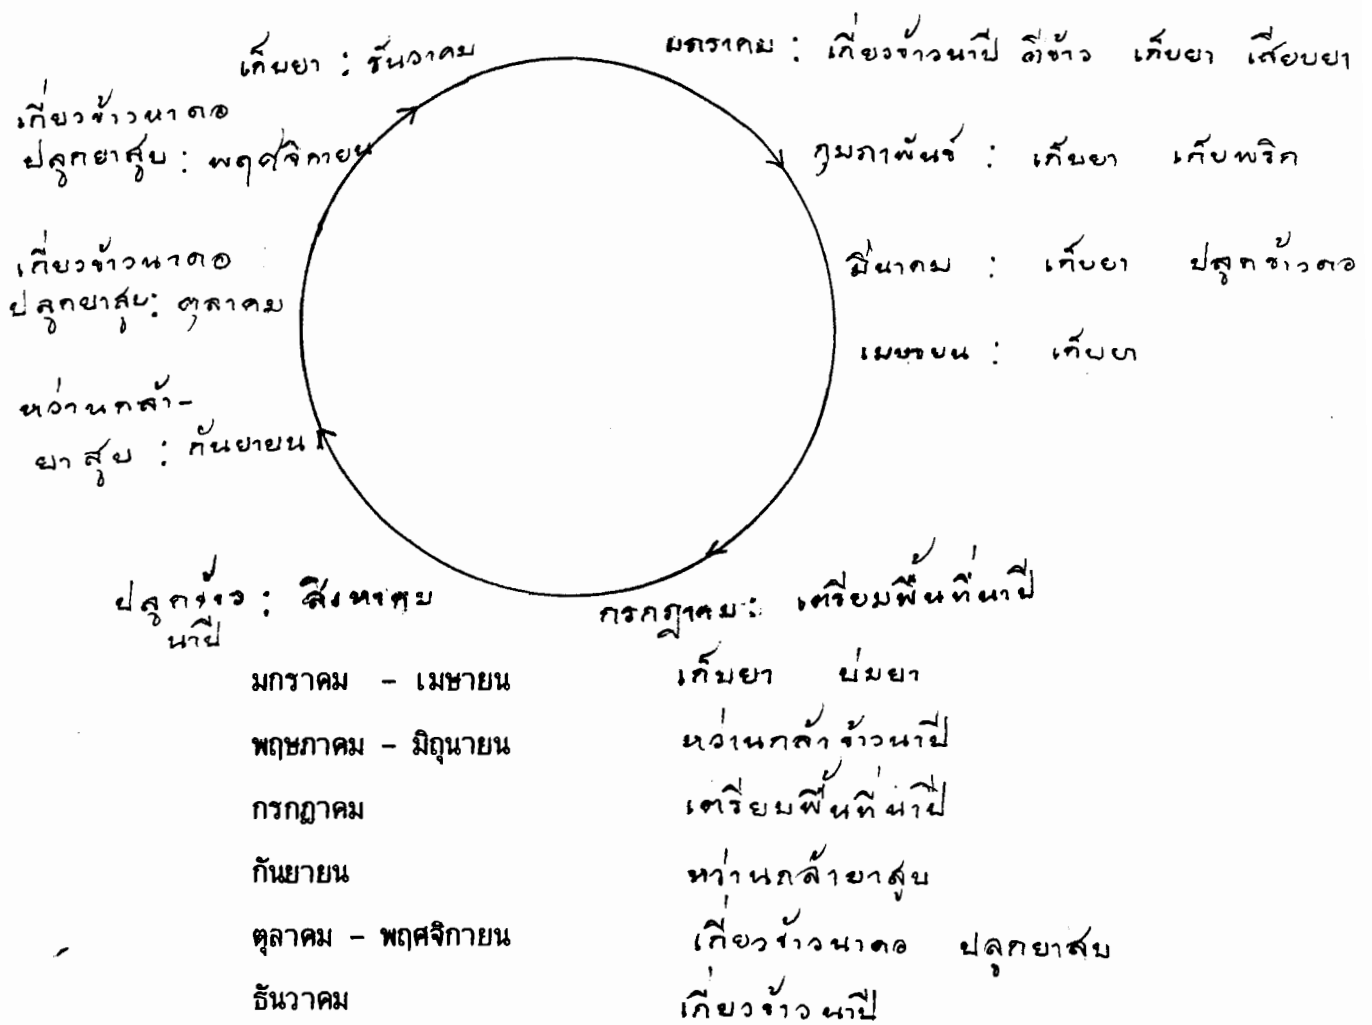 เก็บยา : ธันวาคม
มกราคม : เกี่ยวข้าวนาปี ตีข้าว เก็บยา เสียบยา
เกี่ยวข้าวนาดอ
ปลูกยาสูบ : พฤศจิกายน
กุมภาพันธ์ : เก็บยา เก็บพริก
เกี่ยวข้าวนาดอ
ปลูกยาสูบ : ตุลาคม
มีนาคม : เก็บยา ปลูกข้าวดอ
เมษายน : เก็บยา
หว่านกล้า-
ยาสูบ : กันยายน
ปลูกข้าว : สิงหาคม
นาปี
กรกฎาคม : เตรียมพื้นที่นาปี
มกราคม – เมษายน เก็บยา บ่มยา
พฤษภาคม – มิถุนายน หว่านกล้าข้าวนาปี
กรกฎาคม เตรียมพื้นที่นาปี
กันยายน หว่านกล้ายาสูบ
ตุลาคม – พฤศจิกายน เกี่ยวข้าวนาดอ ปลูกยาสูบ
ธันวาคม เกี่ยวข้าวนาปี